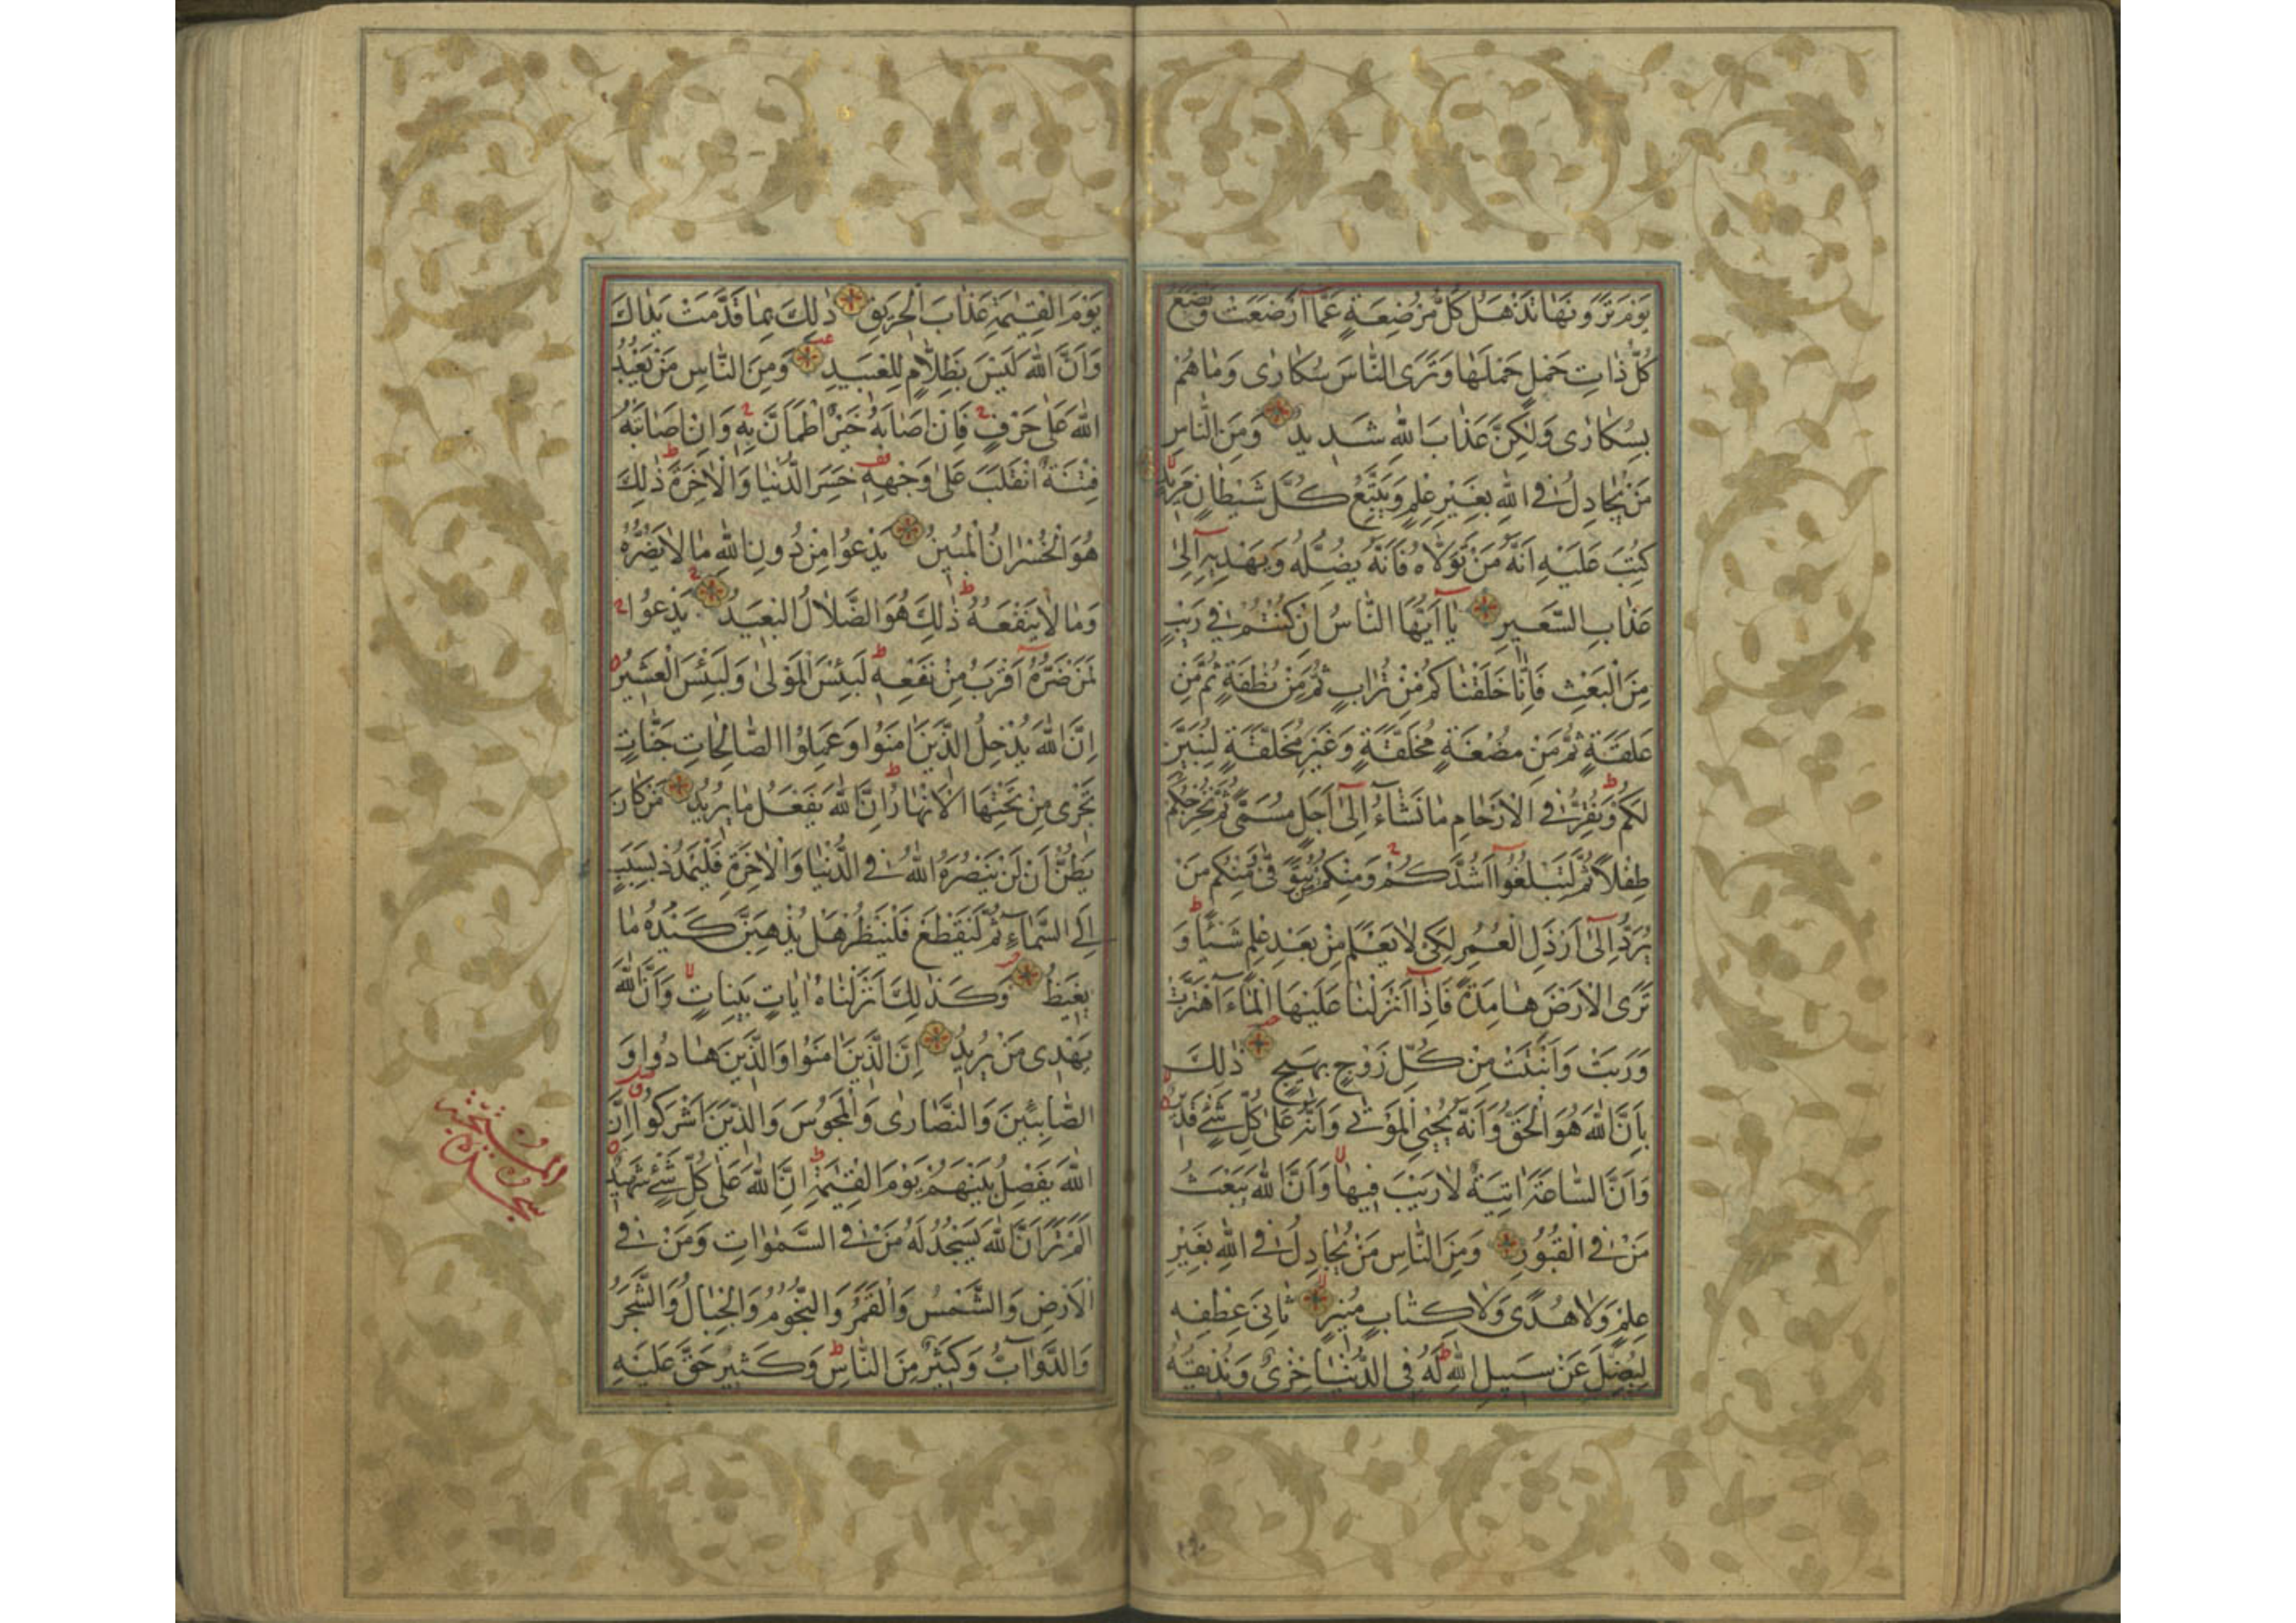 يَوْمَ تَرَوْنَهَا تَذْهَلُ كُلُّ مُرْضِعَةٍ عَمَّا أَرْضَعَتْ وَتَضَعُ
كُلُّ ذَاتِ حَمْلٍ حَمْلَهَا وَتَرَى النَّاسَ سُكَارٰى وَمَا هُمْ
بِسُكَارٰى وَلٰكِنَّ عَذَابَ اللهِ شَدِيدٌ وَمِنَ النَّاسِ
مَنْ يُجَادِلُ فِي اللهِ بِغَيْرِ عِلْمٍ وَيَتَّبِعُ كُلَّ شَيْطَانٍ مَرِيدٍ
كُتِبَ عَلَيْهِ اَنَّهُ مَنْ تَوَلَّاهُ فَاَنَّهُ يُضِلُّهُ وَيَهْدِيهِ اِلٰى
عَذَابِ السَّعِيرِ يَا اَيُّهَا النَّاسُ اِنْ كُنْتُمْ فِي رَيْبٍ
مِنَ الْبَعْثِ فَاِنَّا خَلَقْنَاكُمْ مِنْ تُرَابٍ ثُمَّ مِنْ نُطْفَةٍ ثُمَّ مِنْ
عَلَقَةٍ ثُمَّ مِنْ مُضْغَةٍ مُخَلَّقَةٍ وَغَيْرِ مُخَلَّقَةٍ لِنُبَيِّنَ
لَكُمْ وَنُقِرُّ فِي الْاَرْحَامِ مَا نَشَاءُ اِلٰى اَجَلٍ مُسَمًّى ثُمَّ نُخْرِجُكُمْ
طِفْلًا ثُمَّ لِتَبْلُغُوا اَشُدَّكُمْ وَمِنْكُمْ مَنْ يُتَوَفّٰى وَمِنْكُمْ مَنْ
يُرَدُّ اِلٰى اَرْذَلِ الْعُمُرِ لِكَيْ لَا يَعْلَمَ مِنْ بَعْدِ عِلْمٍ شَيْئًا وَ
تَرَى الْاَرْضَ هَامِدَةً فَاِذَا اَنْزَلْنَا عَلَيْهَا الْمَاءَ اهْتَزَّتْ
وَرَبَتْ وَاَنْبَتَتْ مِنْ كُلِّ زَوْجٍ بَهِيجٍ ذٰلِكَ
بِاَنَّ اللهَ هُوَ الْحَقُّ وَاَنَّهُ يُحْيِي الْمَوْتٰى وَاَنَّهُ عَلٰى كُلِّ شَيْءٍ قَدِيرٌ
وَاَنَّ السَّاعَةَ اٰتِيَةٌ لَا رَيْبَ فِيهَا وَاَنَّ اللهَ يَبْعَثُ
مَنْ فِي الْقُبُورِ وَمِنَ النَّاسِ مَنْ يُجَادِلُ فِي اللهِ بِغَيْرِ
عِلْمٍ وَلَا هُدًى وَلَا كِتَابٍ مُنِيرٍ ثَانِيَ عِطْفِهِ
لِيُضِلَّ عَنْ سَبِيلِ اللهِ لَهُ فِي الدُّنْيَا خِزْيٌ وَنُذِيقُهُ
يَوْمَ الْقِيٰمَةِ عَذَابَ الْحَرِيقِ ذٰلِكَ بِمَا قَدَّمَتْ يَدَاكَ
وَاَنَّ اللهَ لَيْسَ بِظَلَّامٍ لِلْعَبِيدِ وَمِنَ النَّاسِ مَنْ يَعْبُدُ
اللهَ عَلٰى حَرْفٍ فَاِنْ اَصَابَهُ خَيْرٌ اطْمَاَنَّ بِهِ وَاِنْ اَصَابَتْهُ
فِتْنَةٌ انْقَلَبَ عَلٰى وَجْهِهِ خَسِرَ الدُّنْيَا وَالْاٰخِرَةَ ذٰلِكَ
هُوَ الْخُسْرَانُ الْمُبِينُ يَدْعُوا مِنْ دُونِ اللهِ مَا لَا يَضُرُّهُ
وَمَا لَا يَنْفَعُهُ ذٰلِكَ هُوَ الضَّلَالُ الْبَعِيدُ يَدْعُوا
لَمَنْ ضَرُّهُ اَقْرَبُ مِنْ نَفْعِهِ لَبِئْسَ الْمَوْلٰى وَلَبِئْسَ الْعَشِيرُ
اِنَّ اللهَ يُدْخِلُ الَّذِينَ اٰمَنُوا وَعَمِلُوا الصَّالِحَاتِ جَنَّاتٍ
تَجْرِي مِنْ تَحْتِهَا الْاَنْهَارُ اِنَّ اللهَ يَفْعَلُ مَا يُرِيدُ مَنْ كَانَ
يَظُنُّ اَنْ لَنْ يَنْصُرَهُ اللهُ فِي الدُّنْيَا وَالْاٰخِرَةِ فَلْيَمْدُدْ بِسَبَبٍ
اِلَى السَّمَاءِ ثُمَّ لْيَقْطَعْ فَلْيَنْظُرْ هَلْ يُذْهِبَنَّ كَيْدُهُ مَا
يَغِيظُ وَكَذٰلِكَ اَنْزَلْنَاهُ اٰيَاتٍ بَيِّنَاتٍ وَاَنَّ اللهَ
يَهْدِي مَنْ يُرِيدُ اِنَّ الَّذِينَ اٰمَنُوا وَالَّذِينَ هَادُوا وَ
الصَّابِئِينَ وَالنَّصَارٰى وَالْمَجُوسَ وَالَّذِينَ اَشْرَكُوا اِنَّ
اللهَ يَفْصِلُ بَيْنَهُمْ يَوْمَ الْقِيٰمَةِ اِنَّ اللهَ عَلٰى كُلِّ شَيْءٍ شَهِيدٌ
اَلَمْ تَرَ اَنَّ اللهَ يَسْجُدُ لَهُ مَنْ فِي السَّمٰوَاتِ وَمَنْ فِي
الْاَرْضِ وَالشَّمْسُ وَالْقَمَرُ وَالنُّجُومُ وَالْجِبَالُ وَالشَّجَرُ
وَالدَّوَابُّ وَكَثِيرٌ مِنَ النَّاسِ وَكَثِيرٌ حَقَّ عَلَيْهِ